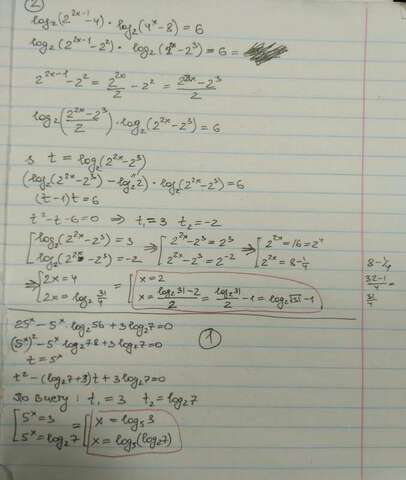 ②
log₂(2^(2x-1)-4)·log₂(4^x-8)=6
log₂(2^(2x-1)-2²)·log₂(2^(2x)-2³)=6=
2^(2x-1)-2²=2^(2x)/2-2²=(2^(2x)-2³)/2
log₂((2^(2x)-2³)/2)·log₂(2^(2x)-2³)=6
з t=log₂(2^(2x)-2³)
(log₂(2^(2x)-2³)-log₂2)·log₂(2^(2x)-2³)=6
(t-1)t=6
t²-t-6=0 ⇒ t₁=3 t₂=-2
[log₂(2^(2x)-2³)=3 ⇒ [2^(2x)-2³=2³ ⇒ [2^(2x)=16=2⁴
log₂(2^(2x)-2³)=-2 2^(2x)-2³=2^(-2) 2^(2x)=8-1/4
8-1/4
(32-1)/4=
31/4
⇒ [2x=4 = [x=2
2x=log₂ 31/4 x=(log₂31-2)/2=log₂31/2-1=log₂√31-1
①
25^x-5^x·log₂56+3log₂7=0
(5^x)²-5^x log₂7·8+3log₂7=0
t=5^x
t²-(log₂7+3)t+3log₂7=0
По Виету: t₁=3 t₂=log₂7
[5^x=3 = [x=log₅3
5^x=log₂7 x=log₅(log₂7)